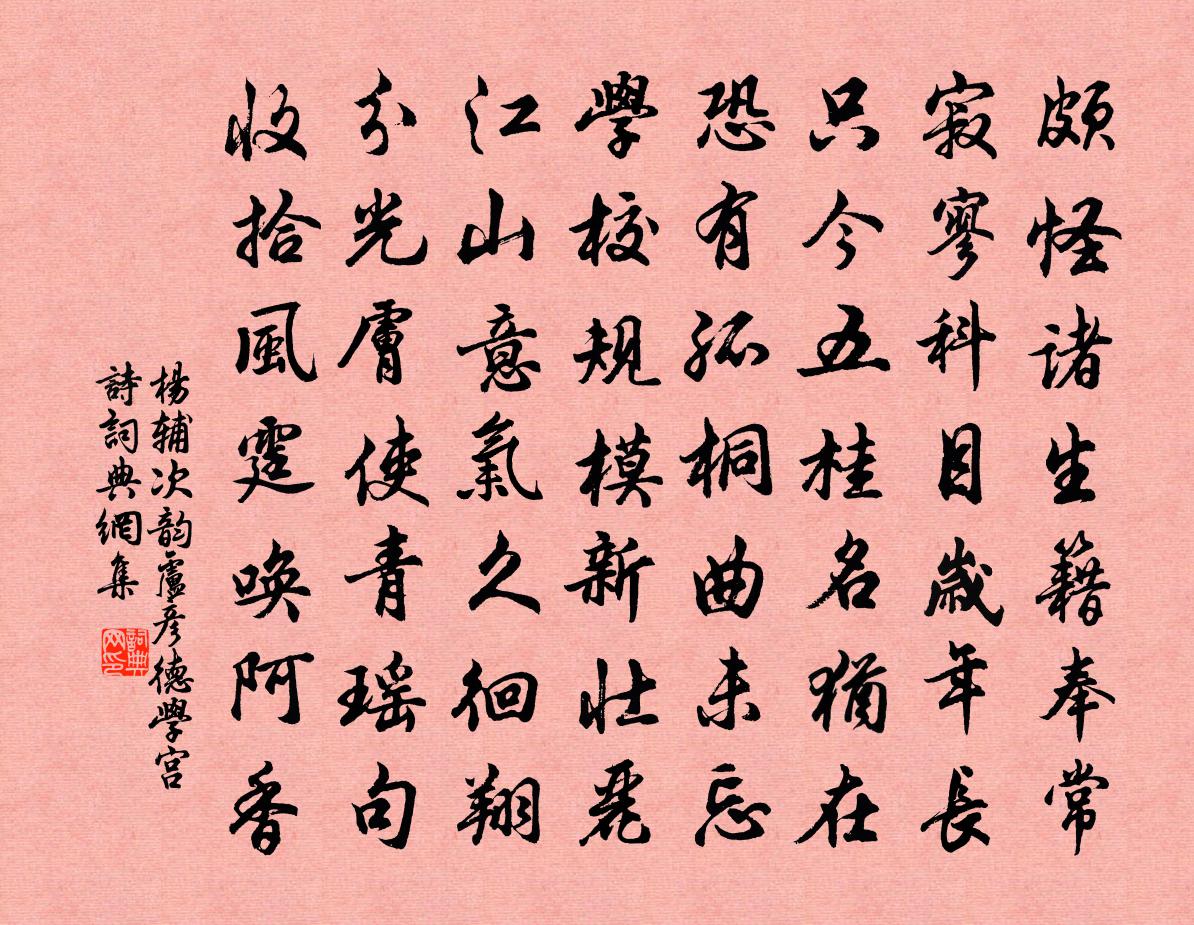 頗怪諸生籍奉常
寂寥科目歲年長
只今五桂名猶在
恐有孤桐曲未忘
學校規模新壯麗
江山意氣久徊翔
分光膚使青瑶句
收拾風霆喚阿香
楊辅次韵盧彦德學宫
詩詞典網集
詞典
网印